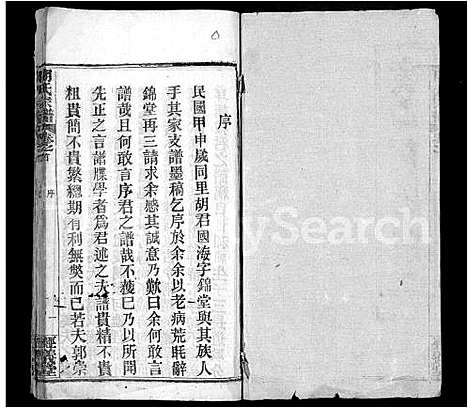 序
民國甲申歲同里胡君國海字錦堂與其族人
手其家支譜墨稿乞序於余余以老病荒耗辭
錦堂再三請求余感其誠意乃歎曰余何敢言
譜哉且何敢言序君之譜哉不獲巳乃以所聞
先正之言譜牒學者為君述之夫譜貴精不貴
粗貴簡不貴繁總期有利無獘而已若夫郭崇
胡氏宗譜 卷之首
序
一
經義堂
MySearch